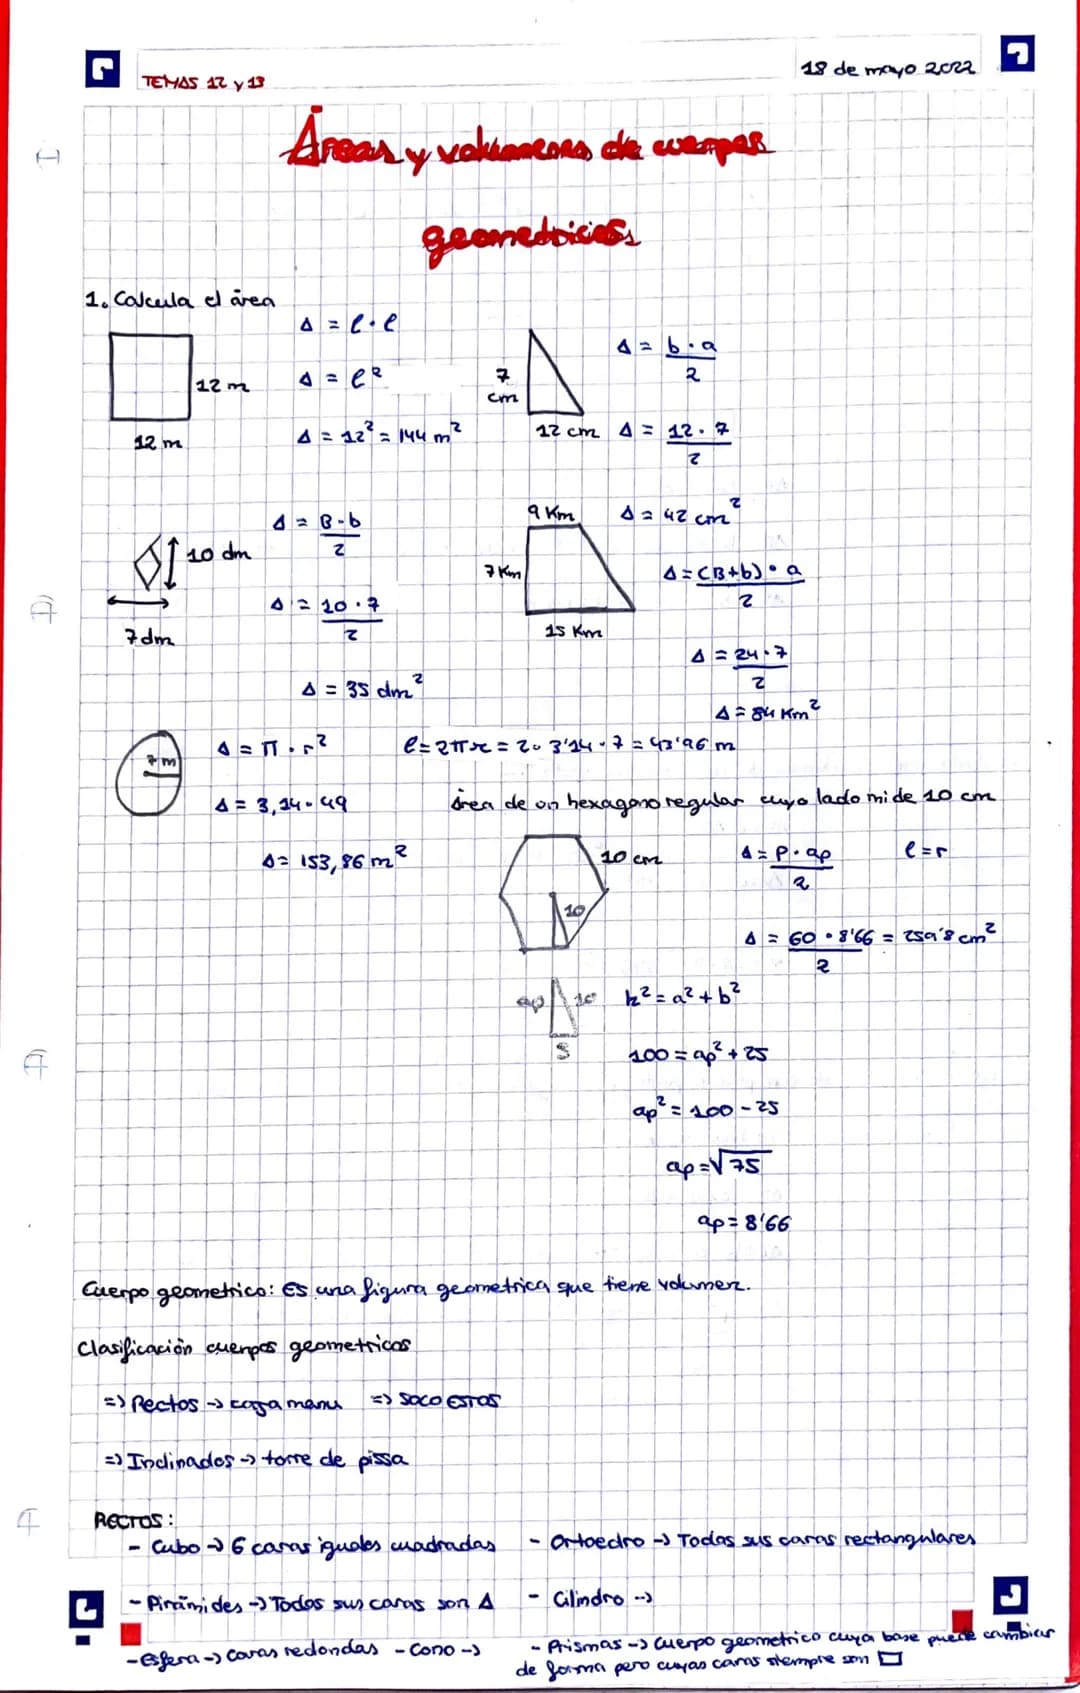 TEMAS 12 y 13
18 de mayo 2022
Áreas y volúmenes de cuerpos
geometricos
1. Calcula el área
12 m
12 m
A = l · l
A = l²
A = 12² = 144 m²
7
cm
12 cm
A = b · a
2
A = 12 · 7
2
A = 42 cm²
10 dm
7 dm
A = B · b
2
A = 10 · 7
2
A = 35 dm²
9 Km
7 Km
15 Km
A = (B+b) · a
2
A = 24 · 7
2
A = 84 Km²
7 m
A = π · r²
A = 3,14 · 49
A = 153,86 m²
l = 2πr = 2 · 3'14 · 7 = 43'96 m
área de un hexagono regular cuyo lado mide 10 cm
10 cm
10
A = P · ap
2
l = r
A = 60 · 8'66 = 259'8 cm²
2
ap 10
5
h² = a² + b²
100 = ap² + 25
ap² = 100 - 25
ap = √75
ap = 8'66
Cuerpo geometrico: Es una figura geometrica que tiene volumen.
Clasificación cuerpos geometricos
=> Rectos -> manu => SOLO ESTOS
=> Inclinados -> torre de pissa
RECTOS:
- Cubo -> 6 caras iguales cuadradas
- Ortoedro -> Todas sus caras rectangulares
- Pirámides -> Todas sus caras son Δ
- Cilindro ->
- Esfera -> caras redondas - Cono ->
- Prismas -> cuerpo geometrico cuya base puede cambiar
de forma pero cuyas caras siempre son ▭